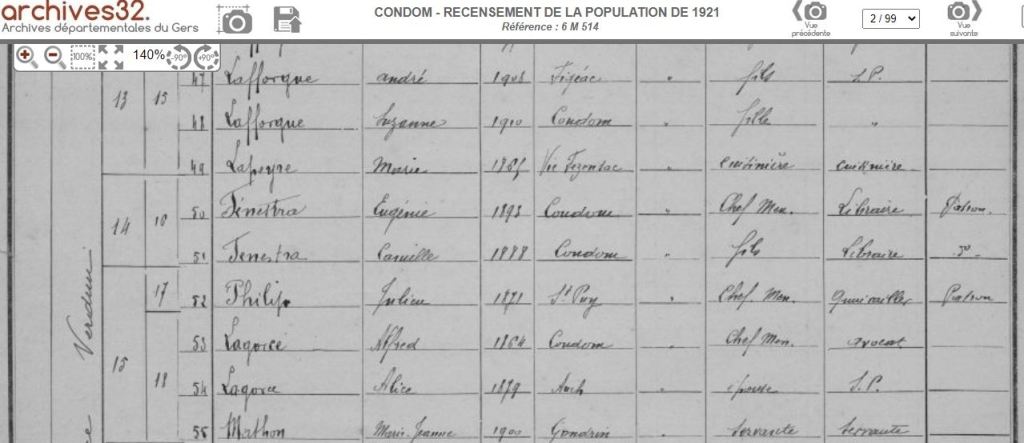 archives32.
Archives départementales du Gers
CONDOM - RECENSEMENT DE LA POPULATION DE 1921
Référence : 6 M 514
Vue précédente
2 / 99
Vue suivante
100% 140% -90° +90°
13 15 47 Lafforgue andré Figéac " fils S.P.
48 Lafforgue Suzanne 1910 Condom " fille "
49 Lapeyre Marie Vic Fezensac " cuisinière cuisinière
14 10 50 Fénestra Eugénie 1893 Condom " Chef Men. Libraire Patron
51 Fenestra Camille 1888 Condom " fils Libraire do
17 52 Philip Julien 1871 St Puy " Chef Men. Quincailler Patron
Verdun
15 18 53 Lagorce Alfred 1864 Condom " Chef Men. avocat
54 Lagorce Alice 1879 Auch " épouse S.P.
55 Mathon Marie-Jeanne 1900 Gondrin " servante servante